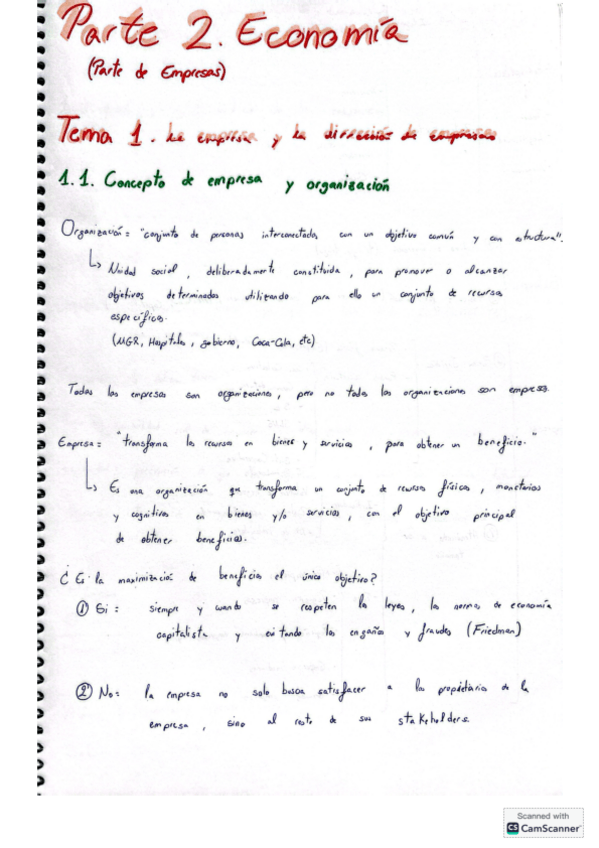 Parte 2. Economía
(Parte de Empresas)
Tema 1. La empresa y la dirección de empresas
1.1. Concepto de empresa y organización
Organización: "conjunto de personas interconectadas con un objetivo común y con estructura".
↳ Unidad social, deliberadamente constituida, para promover o alcanzar
objetivos determinados utilizando para ello un conjunto de recursos
específicos.
(UGR, Hospitales, gobierno, Coca-Cola, etc)
Todas las empresas son organizaciones, pero no todas las organizaciones son empresas.
Empresa: "transforma los recursos en bienes y servicios, para obtener un beneficio."
↳ Es una organización que transforma un conjunto de recursos físicos, monetarios
y cognitivos en bienes y/o servicios, con el objetivo principal
de obtener beneficios.
¿Es la maximización de beneficios el único objetivo?
① Si: siempre y cuando se respeten las leyes, las normas de economía
capitalista y evitando los engaños y fraudes (Friedman)
② No: la empresa no solo busca satisfacer a los propietarios de la
empresa, sino al resto de sus stakeholders.
Scanned with
CS CamScanner